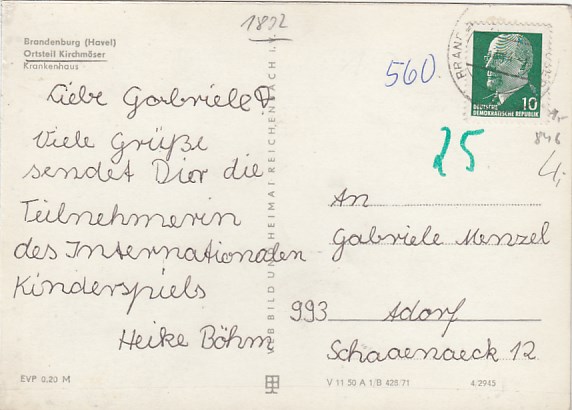 1892
Brandenburg (Havel)
Ortsteil Kirchmöser
Krankenhaus
560.
BRAND
10
DEUTSCHE
DEMOKRATISCHE REPUBLIK
846
4,-
25
Liebe Gabriele!
Viele Grüße
sendet Dier die
Teilnehmerin
des Internationalen
Kinderspiels
Heike Böhm
An
Gabriele Menzel
993 Adorf
Schaaenaeck 12
VEB BILD UND HEIMAT REICHENBACH i. V.
EVP 0.20 M
V 11 50 A 1/B 428/71
4/2945